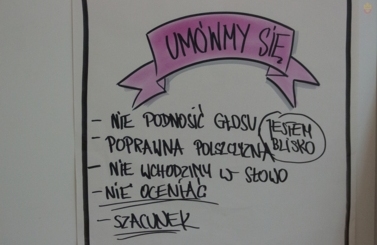 UMÓWMY SIĘ
- NIE PODNOSIĆ GŁOSU
JESTEM
BLISKO
- POPRAWNA POLSZCZYZNA
- NIE WCHODZIMY W SŁOWO
- NIE OCENIAĆ
- SZACUNEK